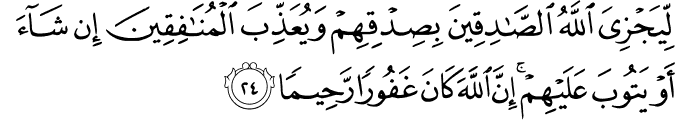 لِّيَجْزِىَ ٱللَّهُ ٱلصَّٰدِقِينَ بِصِدْقِهِمْ وَيُعَذِّبَ ٱلْمُنَٰفِقِينَ إِن شَآءَ
أَوْ يَتُوبَ عَلَيْهِمْ ۚ إِنَّ ٱللَّهَ كَانَ غَفُورًا رَّحِيمًا ٢٤